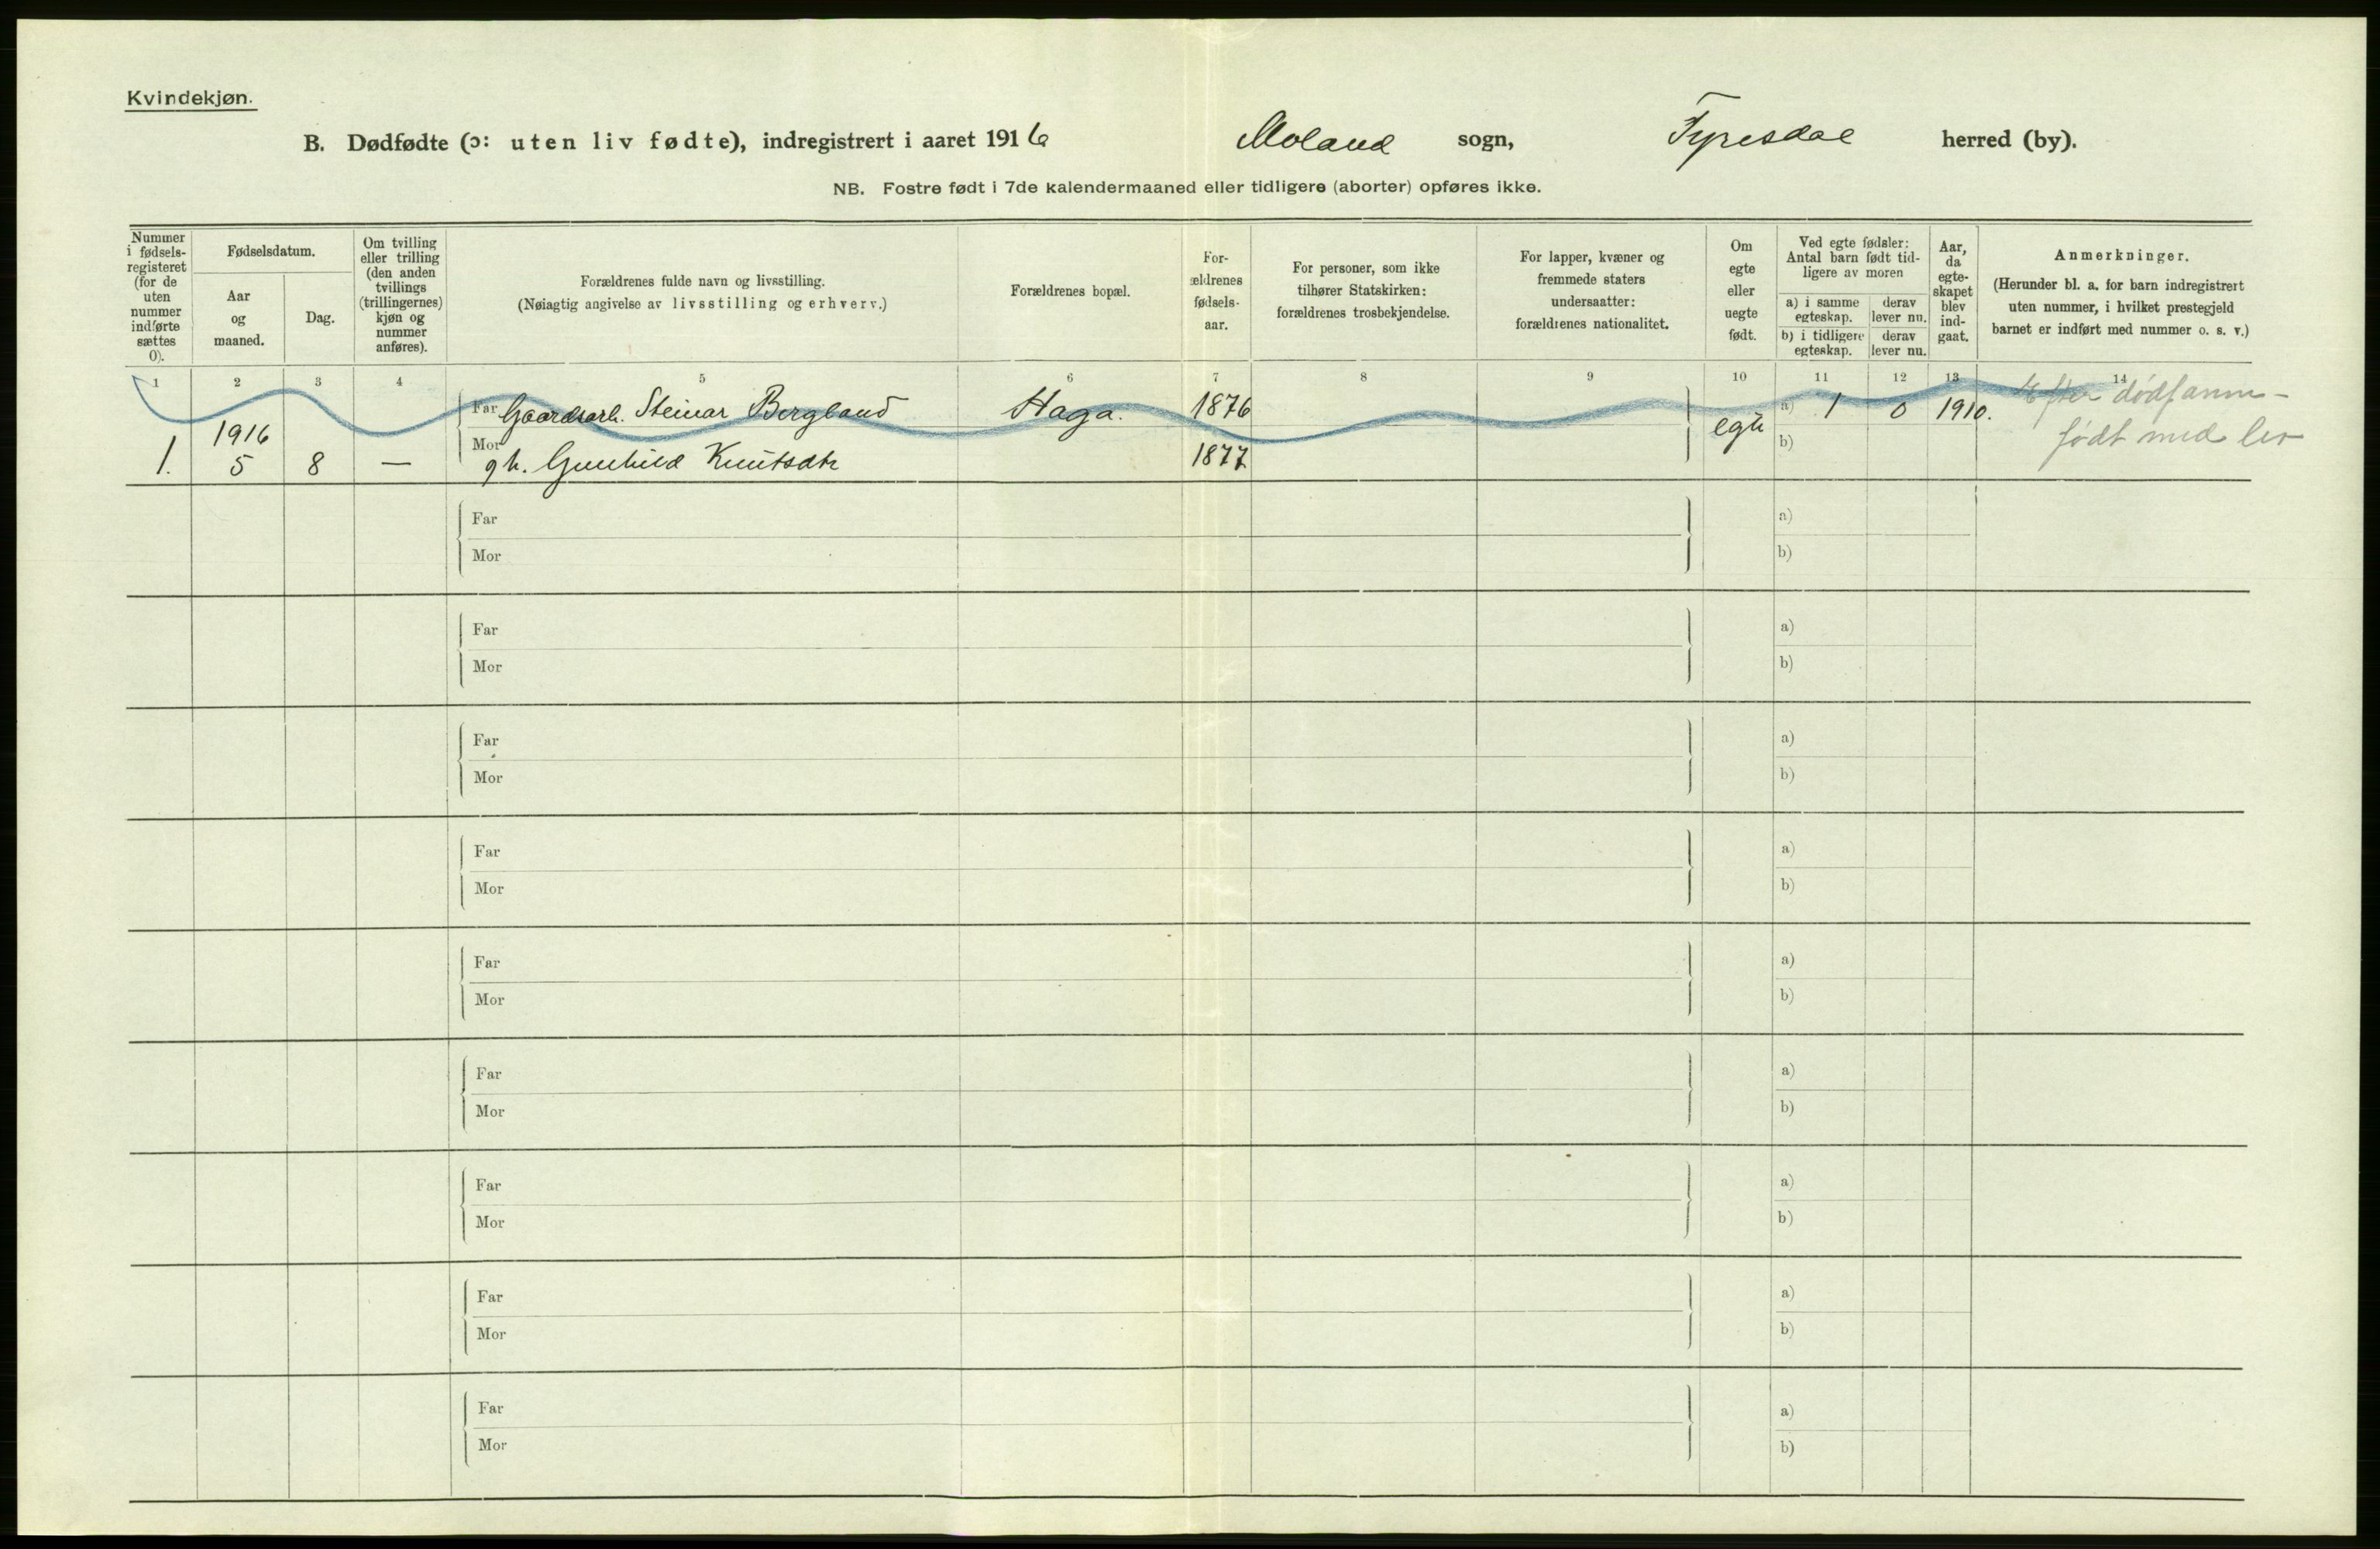 Kvindekjøn.
B. Dødfødte (ɔ: uten liv fødte), indregistrert i aaret 1916 Moland sogn, Fyresdal herred (by).
NB. Fostre født i 7de kalendermaaned eller tidligere (aborter) opføres ikke.
Nummer i fødsels-registeret (for de uten nummer indførte sættes 0).
Fødselsdatum.
Aar og maaned.
Dag.
Om tvilling eller trilling (den anden tvillings (trillingernes) kjøn og nummer anføres).
Forældrenes fulde navn og livsstilling.
(Nøiagtig angivelse av livsstilling og erhverv.)
Forældrenes bopæl.
For-ældrenes fødsels-aar.
For personer, som ikke tilhører Statskirken: forældrenes trosbekjendelse.
For lapper, kvæner og fremmede staters undersaatter: forældrenes nationalitet.
Om egte eller uegte født.
Ved egte fødsler: Antal barn født tid-ligere av moren
a) i samme egteskap.
derav lever nu.
b) i tidligere egteskap.
derav lever nu.
Aar, da egte-skapet blev ind-gaat.
Anmerkninger.
(Herunder bl. a. for barn indregistrert uten nummer, i hvilket prestegjeld barnet er indført med nummer o. s. v.)
1 2 3 4 5 6 7 8 9 10 11 12 13 14
Far Gaardsarb. Steinar Bergland Haga. 1876 egte a) 1 0 1910. Efter dødsanm-
1. 1916 5 8 — Mor gh. Gunhild Knutsdtr 1877 b) født med liv
Far a)
Mor b)
Far a)
Mor b)
Far a)
Mor b)
Far a)
Mor b)
Far a)
Mor b)
Far a)
Mor b)
Far a)
Mor b)
Far a)
Mor b)
Far a)
Mor b)